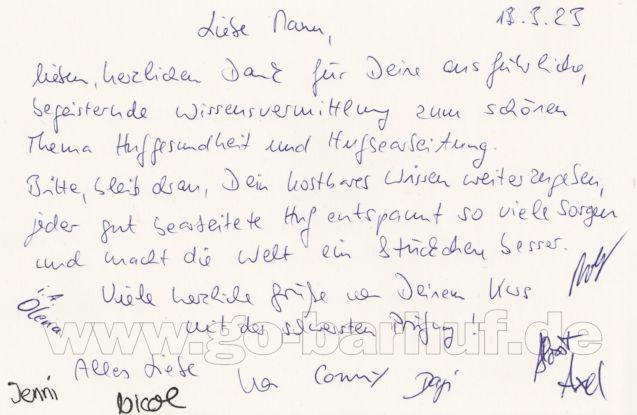 13.3.23
Liebe Manu,
lieben, herzlichen Dank für Deine ausführliche,
begeisternde Wissensvermittlung zum schönen
Thema Hufgesundheit und Hufbearbeitung.
Bitte, bleib dran, Dein kostbares Wissen weiterzugeben,
jeder gut bearbeitete Huf entspannt so viele Sorgen
und macht die Welt ein Stückchen besser.
Viele herzliche Grüße von Deinem Kurs
mit der schwersten Prüfung!
i.A. Olena
www.go-barhuf.de
Alles Liebe
Jenni Nicole Conny Axel